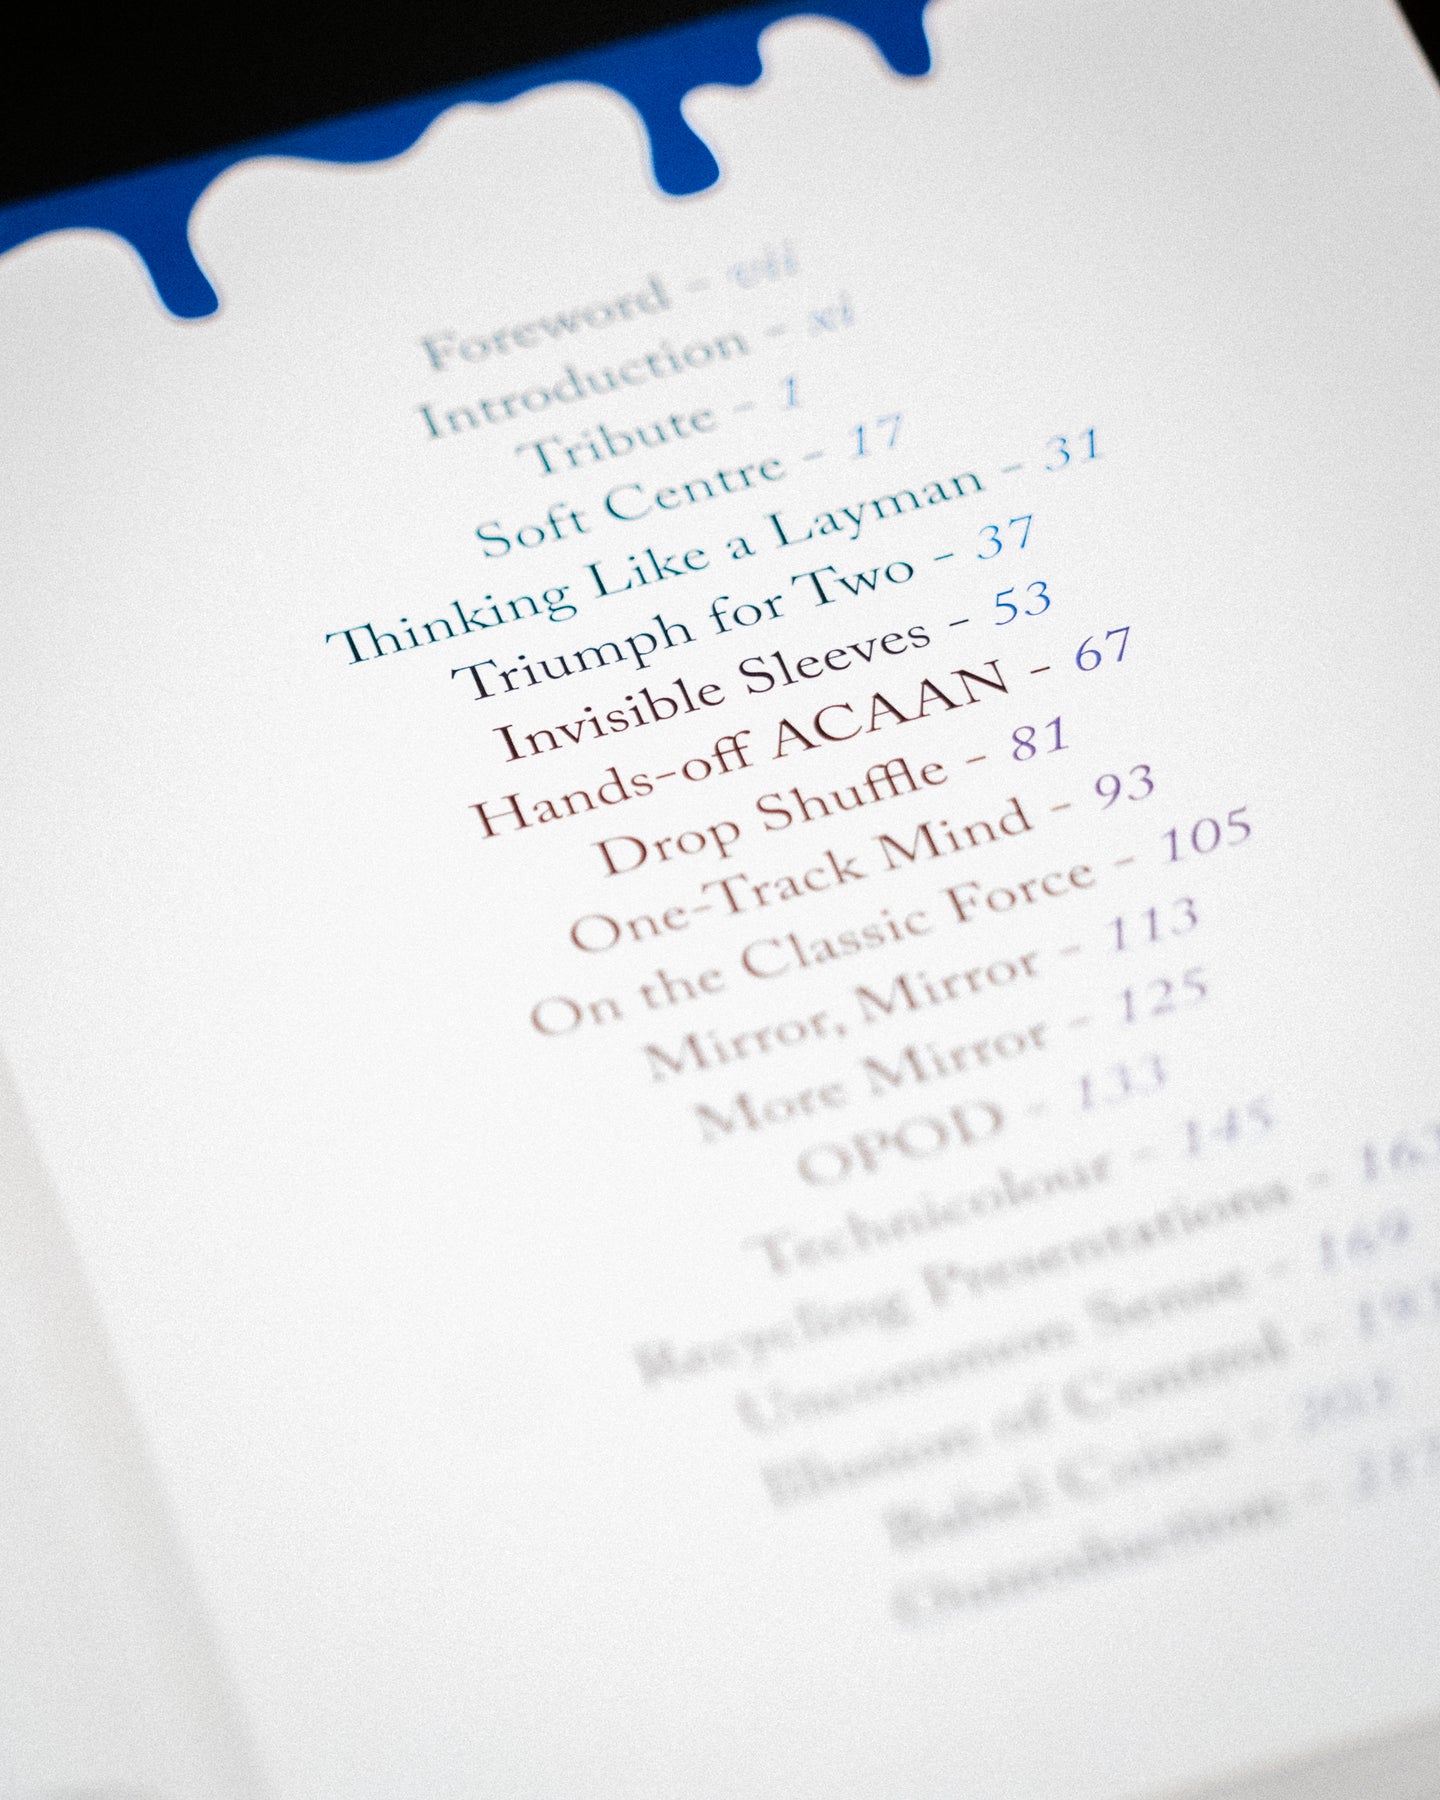 Foreword - vii
Introduction - xi
Tribute - 1
Soft Centre - 17
Thinking Like a Layman - 31
Triumph for Two - 37
Invisible Sleeves - 53
Hands-off ACAAN - 67
Drop Shuffle - 81
One-Track Mind - 93
On the Classic Force - 105
Mirror, Mirror - 113
More Mirror - 125
OPOD - 133
Technicolour - 145
Recycling Presentations -
Uncommon Sense - 169
Illusion of Control -